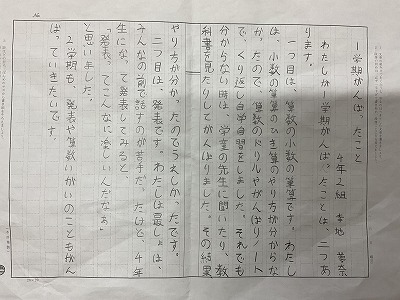 一学期がんばったこと
4年2組
わたしが一学期がんばったことは、二つあ
ります。
一つ目は、算数の小数の筆算です。わたし
は、小数の算数のひき算のやり方が分からな
かったので、算数のドリルやがんばりノート
で、くり返し自学自習をしました。それでも
分からない時は、学童の先生に聞いたり、教
科書を見たりしてがんばりました。その結果
やり方が分かったのでうれしかったです。
二つ目は、発表です。わたしは最しょは、
みんなの前で話すのが苦手だったけど、4年
生になって発表してみると
「発表ってこんなに楽しいんだなぁ」
と思いました。
2学期も、発表や算数いがいのこともがん
ばっていきたいです。